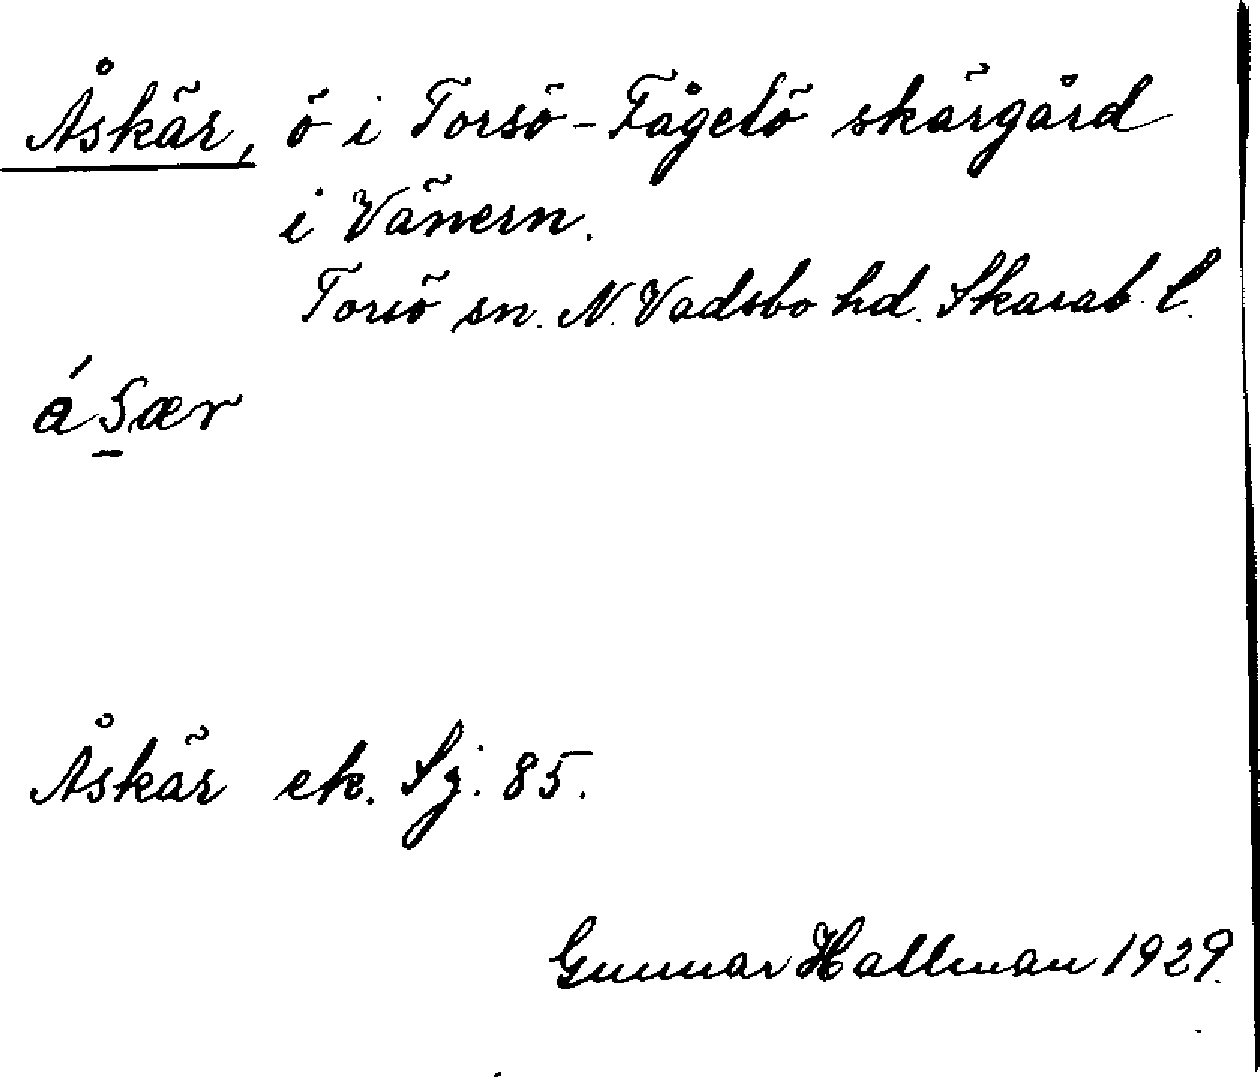 Åskär, ö i Torsö-Fågelö skärgård
i Vänern.
Torsö sn. N. Vadsbo hd. Skarab. l.
Åskär ek. Sj. 85.
Gunnar Hallman 1929.